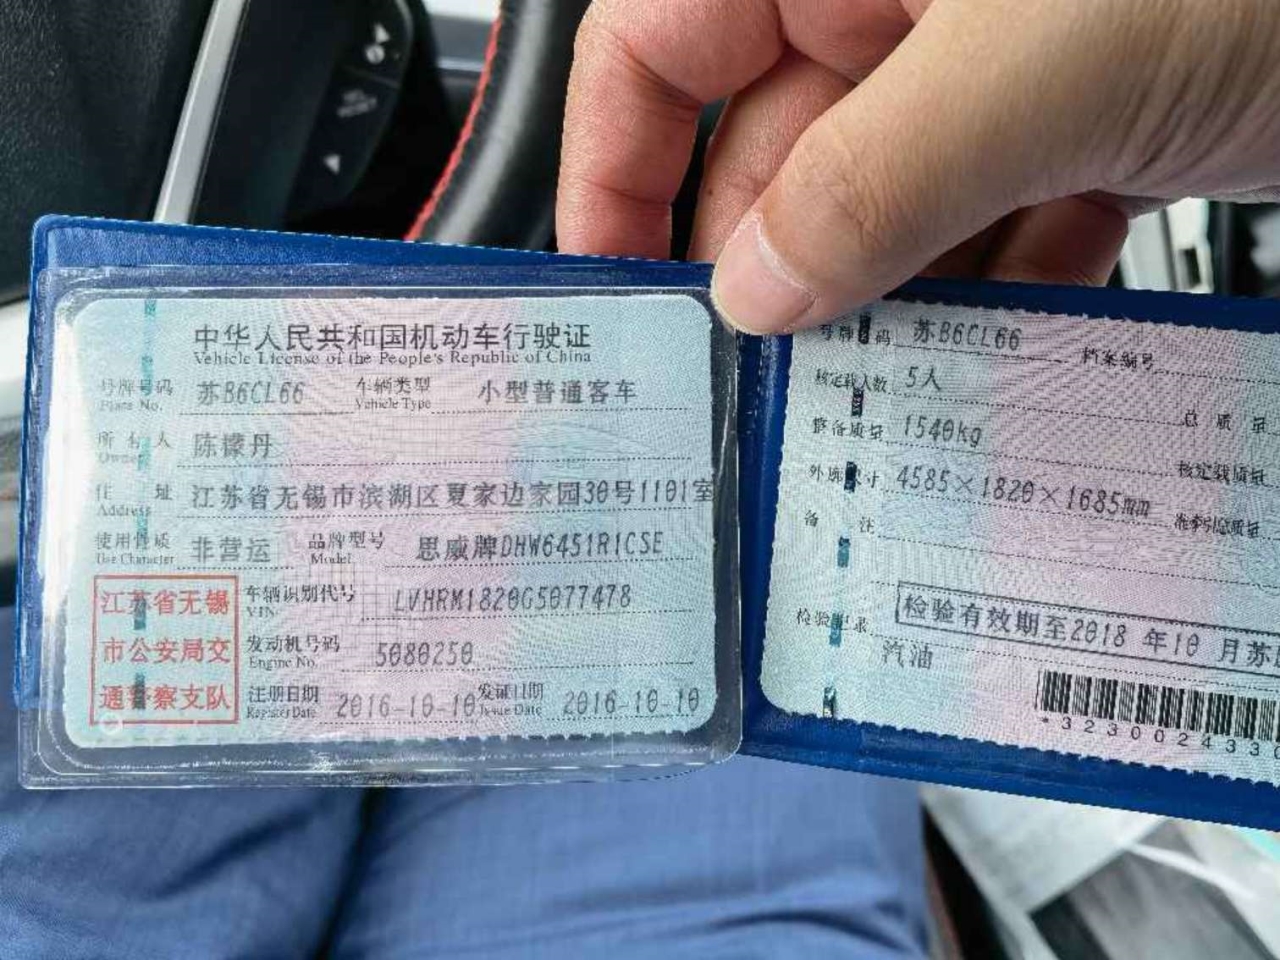 中华人民共和国机动车行驶证
Vehicle License of the People's Republic of China
号牌号码 苏B6CL66 车辆类型 小型普通客车
Plate No. Vehicle Type
所有人 陈檬丹
Owner
住 址 江苏省无锡市滨湖区夏家边家园30号1101室
Address
使用性质 非营运 品牌型号 思威牌DHW6451R1CSE
Use Character Model
江苏省无锡
市公安局交
通警察支队
车辆识别代号 LVHRM1820G5077478
VIN
发动机号码 5080250
Engine No.
注册日期 2016-10-10 发证日期 2016-10-10
Register Date Issue Date
号牌号码 苏B6CL66 档案编号
核定载人数 5人 总质量
整备质量 1540kg 核定载质量
外廓尺寸 4585×1820×1685mm 准牵引总质量
备 注
检验有效期至2018 年10 月苏
检验记录
汽油
*323002433